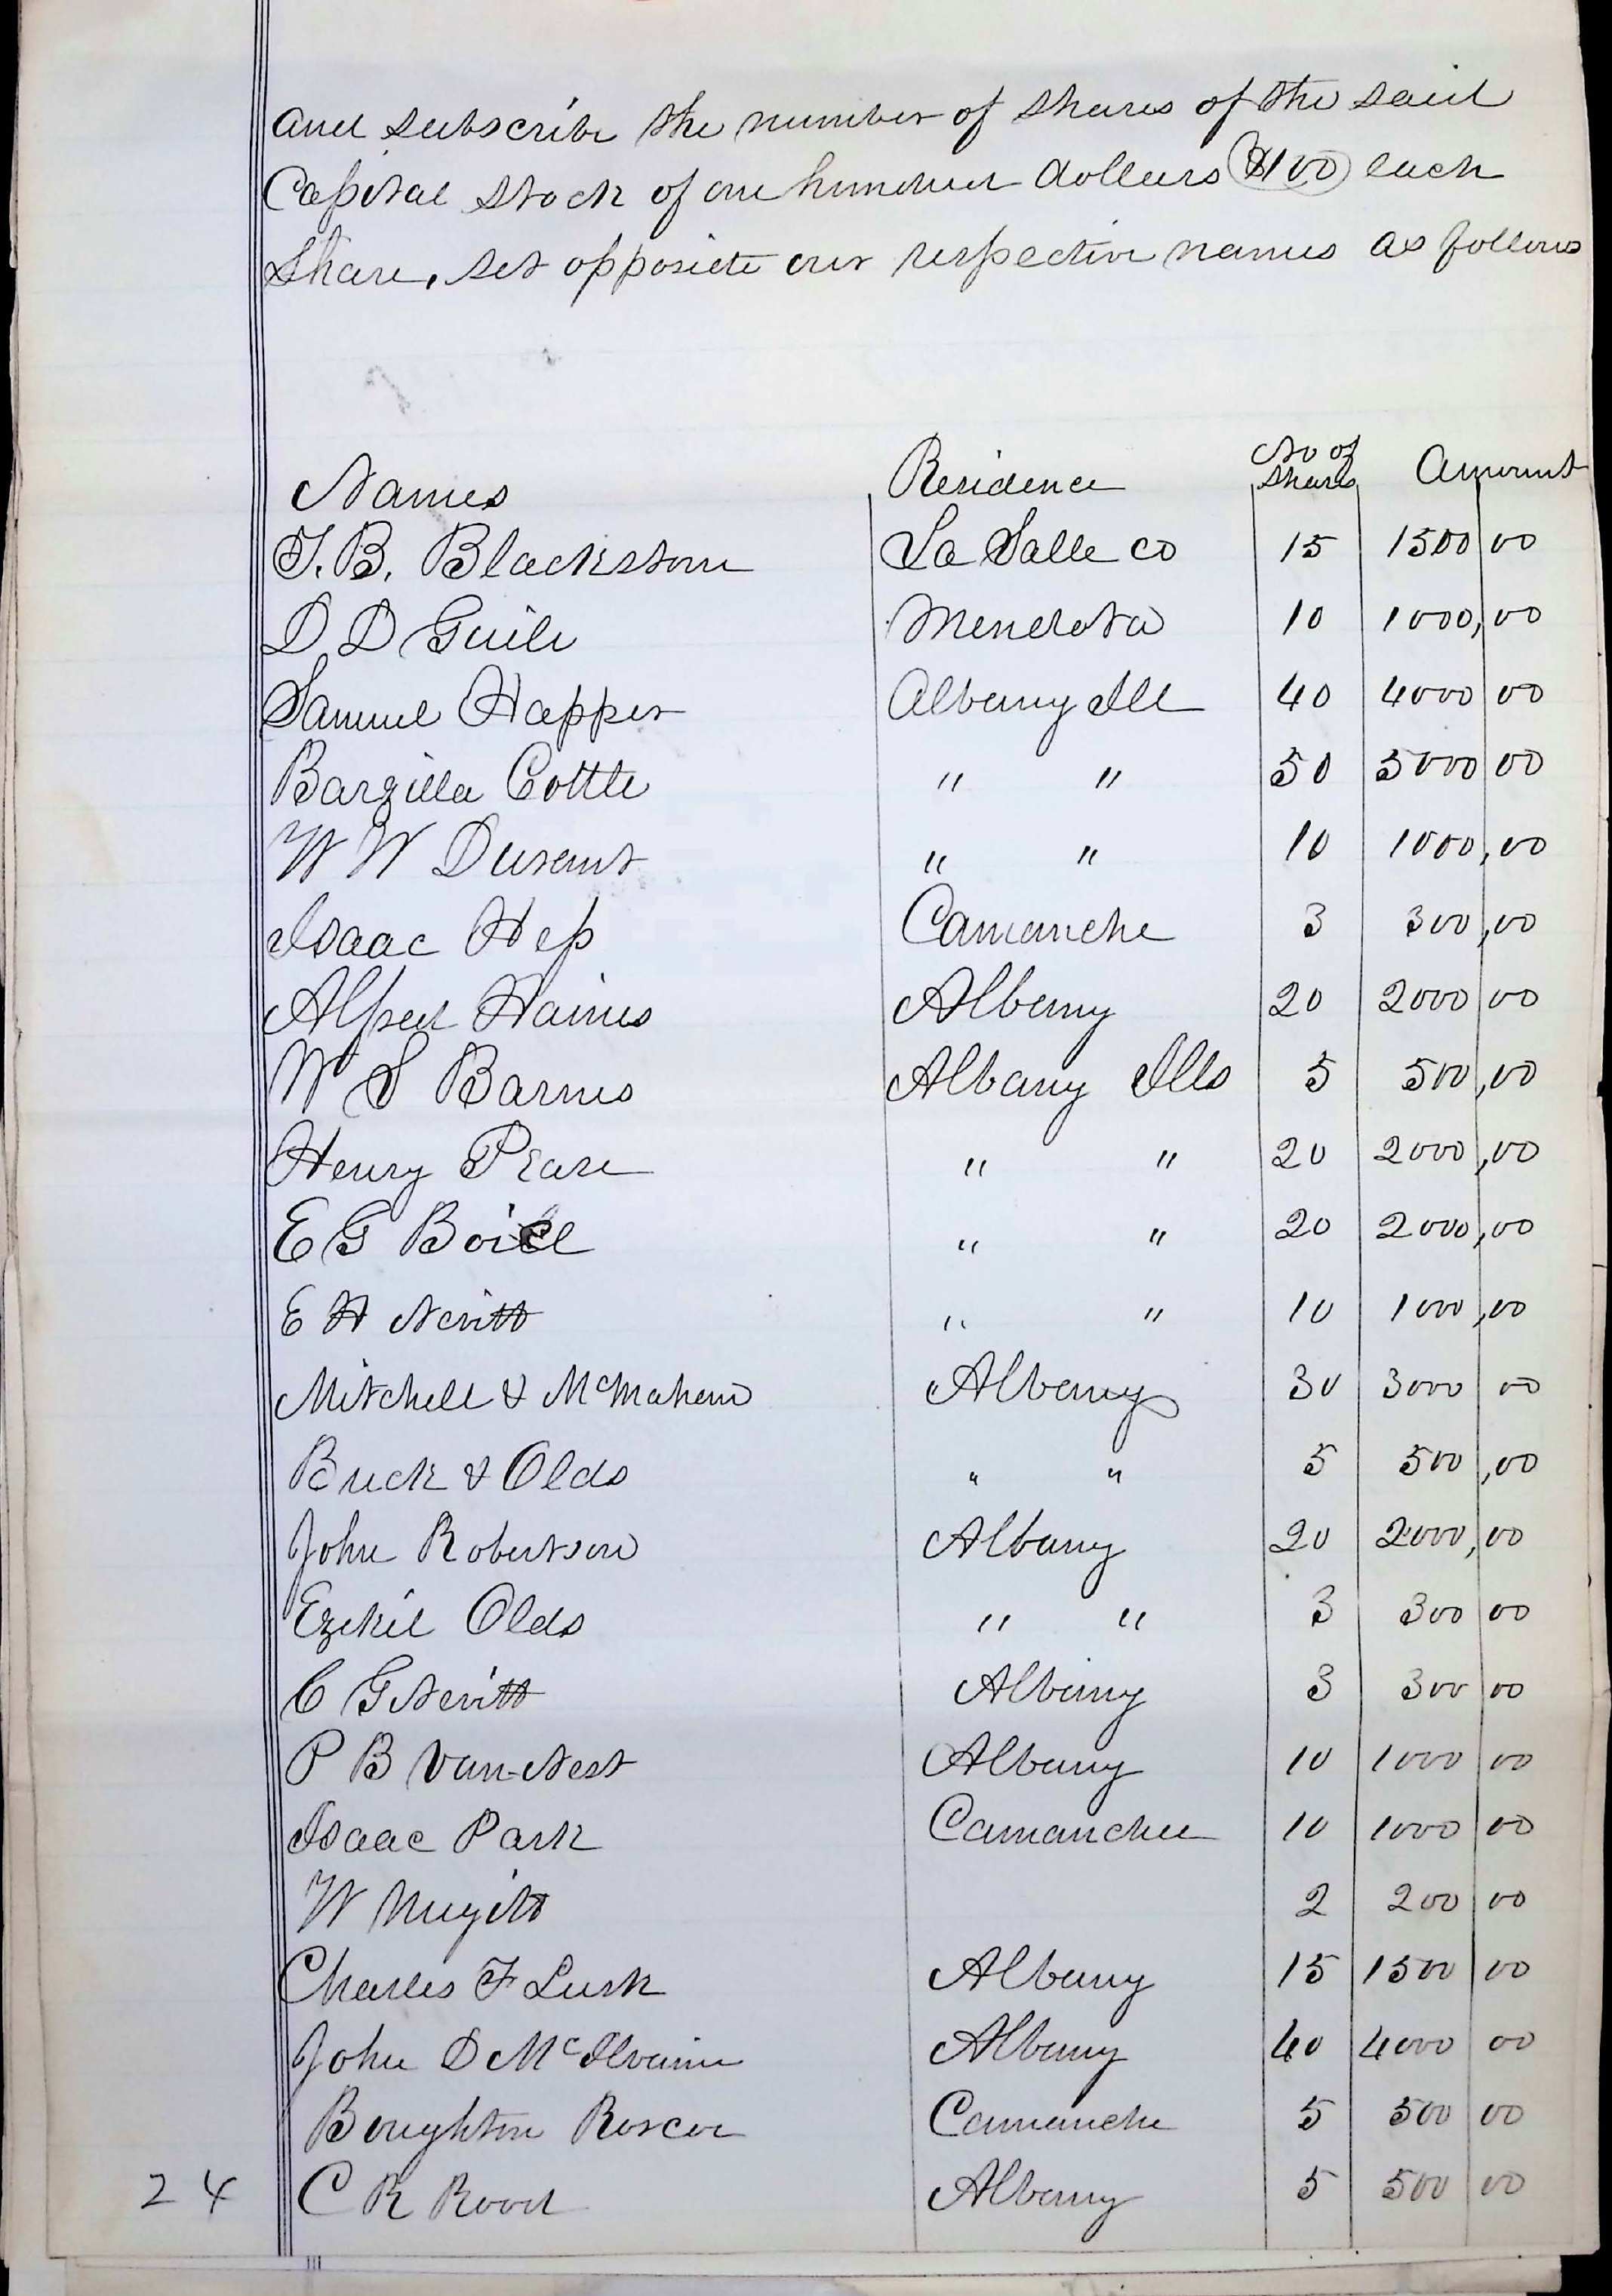 and subscribe the number of shares of the said
Capital stock of one hundred dollars $100 each
Share, set opposite our respective names as follows
Names Residence No of Shares Amount
T. B. Blackstone La Salle co 15 1500 00
D D Guile Mendota 10 1000,00
Samuel Happer Albany Ill 40 4000 00
Barzilla Cottle " " 50 5000 00
W W Durant " " 10 1000,00
Isaac Hep Camanche 3 300,00
Alfred Haines Albany 20 2000 00
W S Barnes Albany Ills 5 500,00
Henry Pease " " 20 2000,00
E G Boice " " 20 2000,00
E H Nevitt " " 10 1000,00
Mitchell & McMahan Albany 30 3000 00
Buck & Olds " " 5 500,00
John Robertson Albany 20 2000,00
Ezekil Olds " " 3 300 00
C G Nevitt Albany 3 300 00
P B Van-Nest Albany 10 1000 00
Isaac Park Camanchee 10 1000 00
W 2 200 00
Charles F Lusk Albany 15 1500 00
John D McIlvaine Albany 40 4000 00
Boughton Roscoe Camanche 5 500 00
24 C R Rood Albany 5 500 00